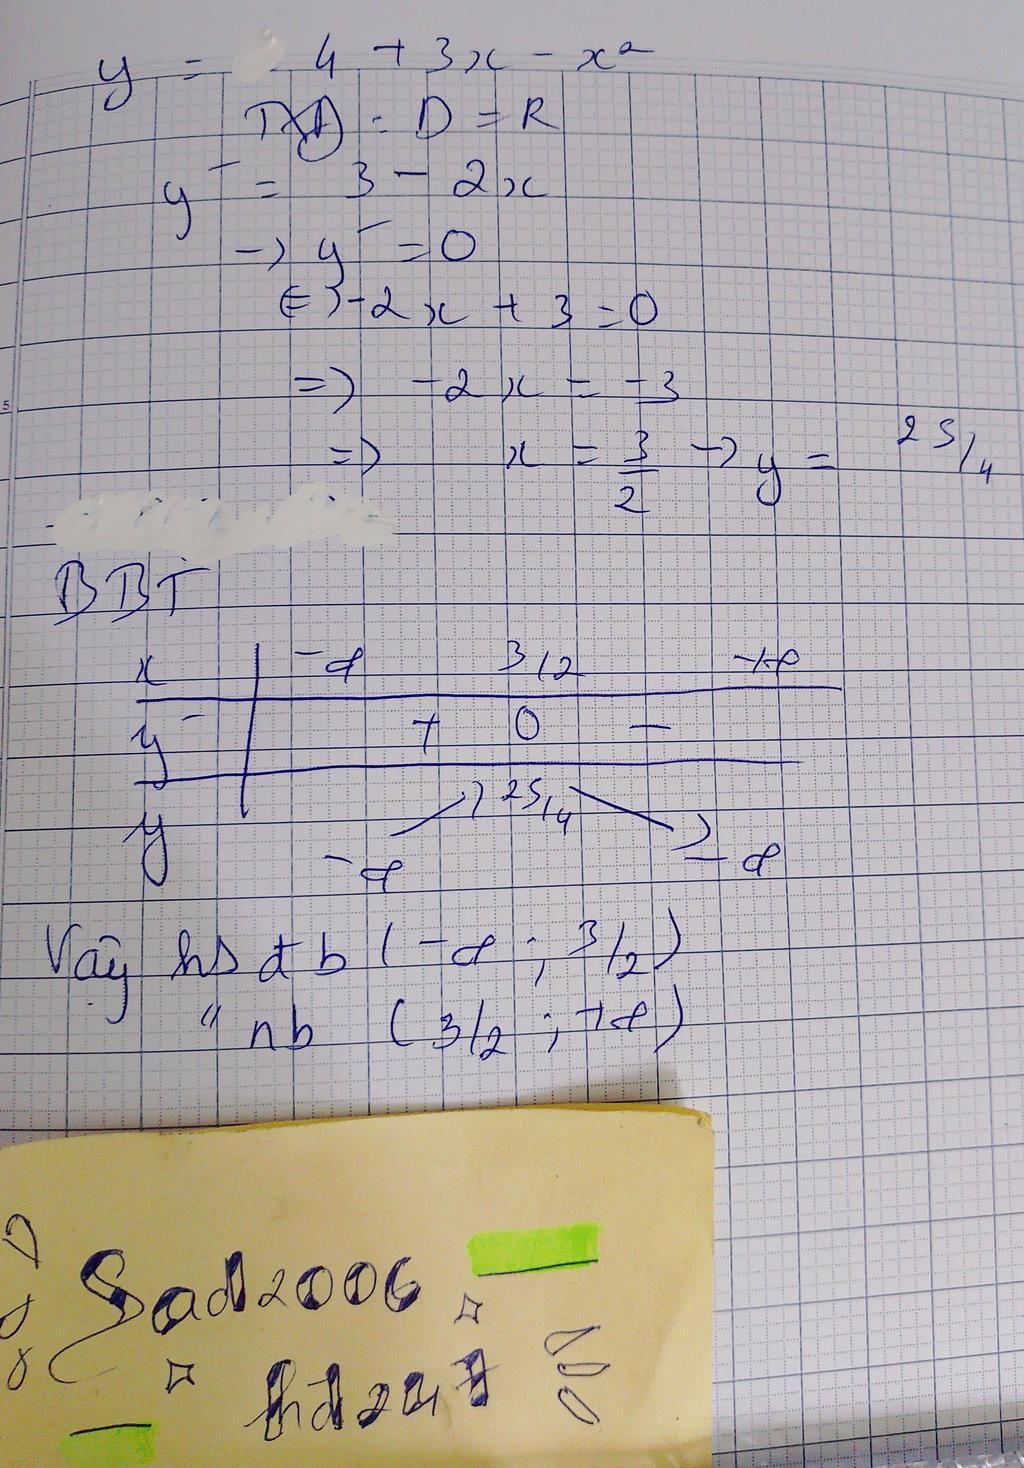 y = 4 + 3x - x²
TXĐ : D = R
y' = 3 - 2x
→ y' = 0
⇔ -2x + 3 = 0
=> -2x = -3
=> x = 3/2 → y = 25/4
BBT
x -∞ 3/2 +∞
y' + 0 -
y 25/4
-∞ -∞
Vậy hs đb (-∞ ; 3/2)
" nb (3/2 ; +∞)
Sad2006
hd247
5